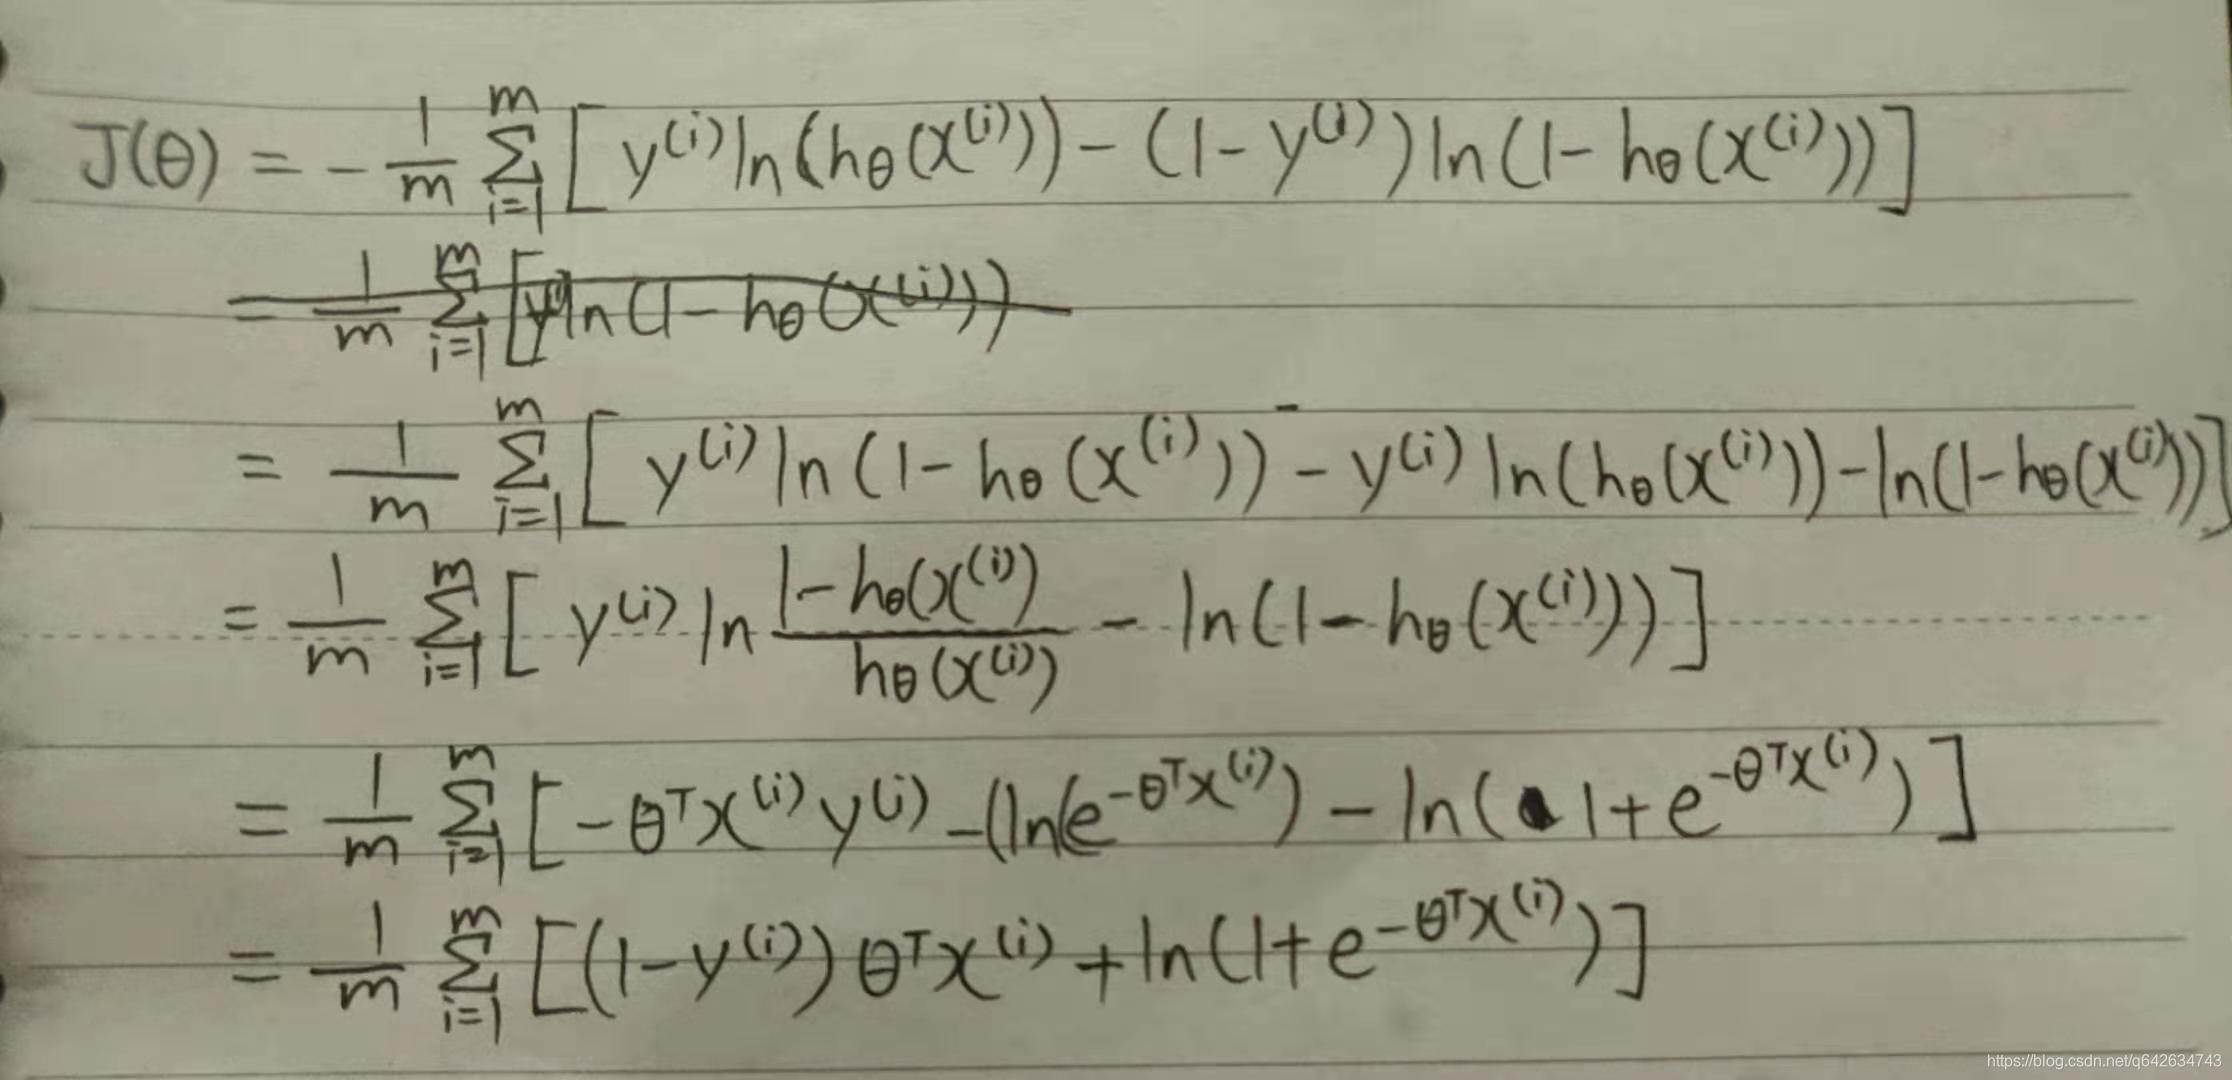 J(θ) = - 1/m Σ_{i=1}^{m} [ y^{(i)} ln(hθ(x^{(i)})) - (1 - y^{(i)}) ln(1 - hθ(x^{(i)}))]
= 1/m Σ_{i=1}^{m} [ y^{(i)} ln(1 - hθ(x^{(i)}))
= 1/m Σ_{i=1}^{m} [ y^{(i)} ln(1 - hθ(x^{(i)})) - y^{(i)} ln(hθ(x^{(i)})) - ln(1 - hθ(x^{(i)}))]
= 1/m Σ_{i=1}^{m} [ y^{(i)} ln (1 - hθ(x^{(i)}))/(hθ(x^{(i)})) - ln(1 - hθ(x^{(i)}))]
= 1/m Σ_{i=1}^{m} [ -θ^T x^{(i)} y^{(i)} - (ln(e^{-θ^T x^{(i)}}) - ln(1 + e^{-θ^T x^{(i)}}) ]
= 1/m Σ_{i=1}^{m} [(1 - y^{(i)}) θ^T x^{(i)} + ln(1 + e^{-θ^T x^{(i)}})]
https://blog.csdn.net/q642634743